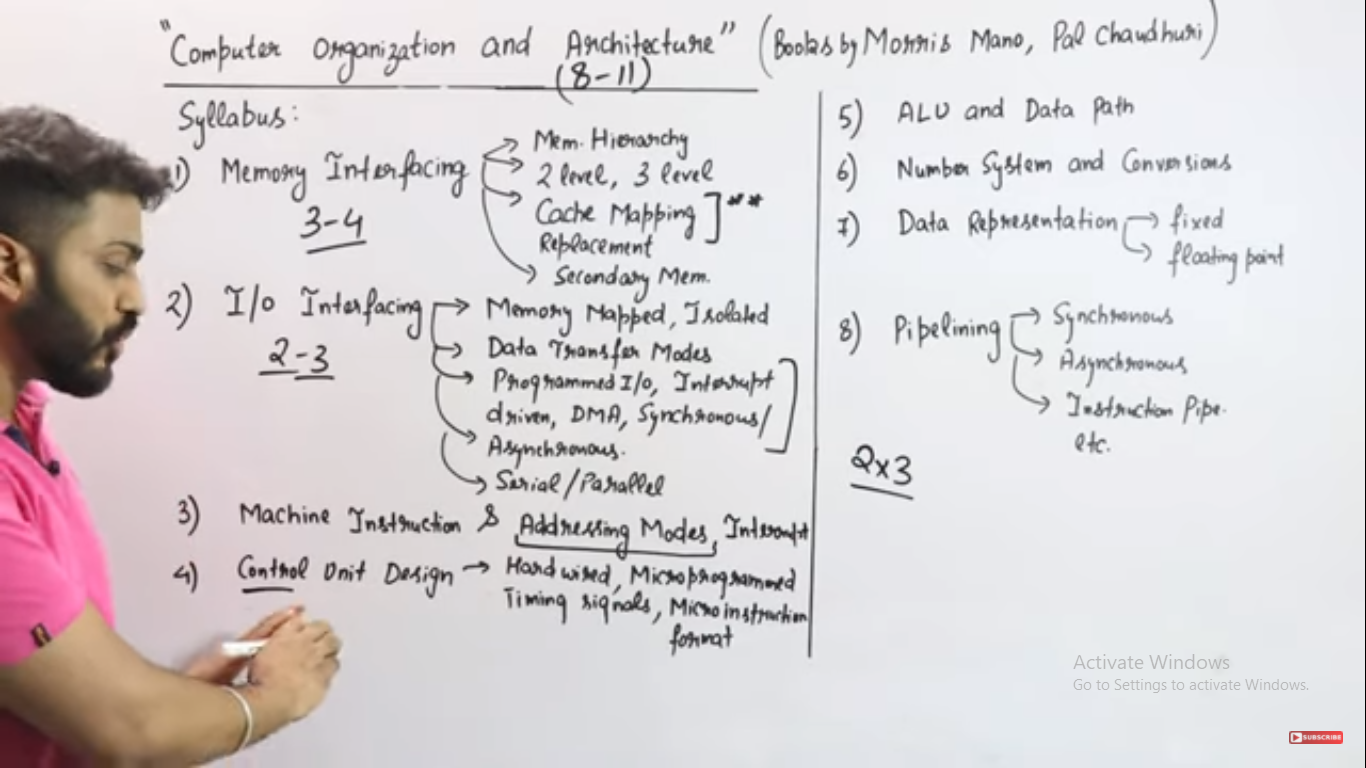 "Computer Organization and Architecture" (Books by Morris Mano, Pal Chaudhuri)
(8-11)
Syllabus:
1) Memory Interfacing
3-4
Mem. Hierarchy
2 level, 3 level
Cache Mapping ] **
Replacement
Secondary Mem.
2) I/o Interfacing
2-3
Memory Mapped, Isolated
Data Transfer Modes
Programmed I/o, Interrupt
driven, DMA, Synchronous/
Asynchronous.
Serial/Parallel
3) Machine Instruction & Addressing Modes, Interrupt
4) Control Unit Design → Hardwired, Microprogrammed
Timing signals, Microinstruction
format
5) ALU and Data Path
6) Number System and Conversions
7) Data Representation → fixed
floating point
8) Pipelining → Synchronous
Asynchronous
Instruction Pipe.
etc.
2x3
Activate Windows
Go to Settings to activate Windows.
SUBSCRIBE